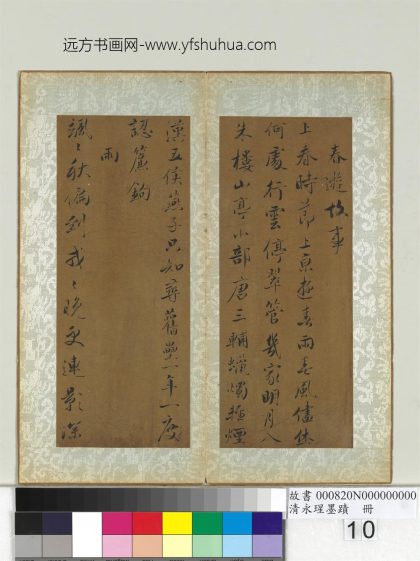 远方书画网-www.yfshuhua.com
春游故事
上春時節上京遊春雨春風儘休
何處行雲停翠管幾家明月八
朱樓山亭小部唐三輔蠟燭輕煙
漢五侯燕子只知尋舊壘一年一度
認簾鉤
雨
颯颯秋偏到戎戎晚更連影深
故書 000820N000000000
清永瑆墨蹟 冊
10